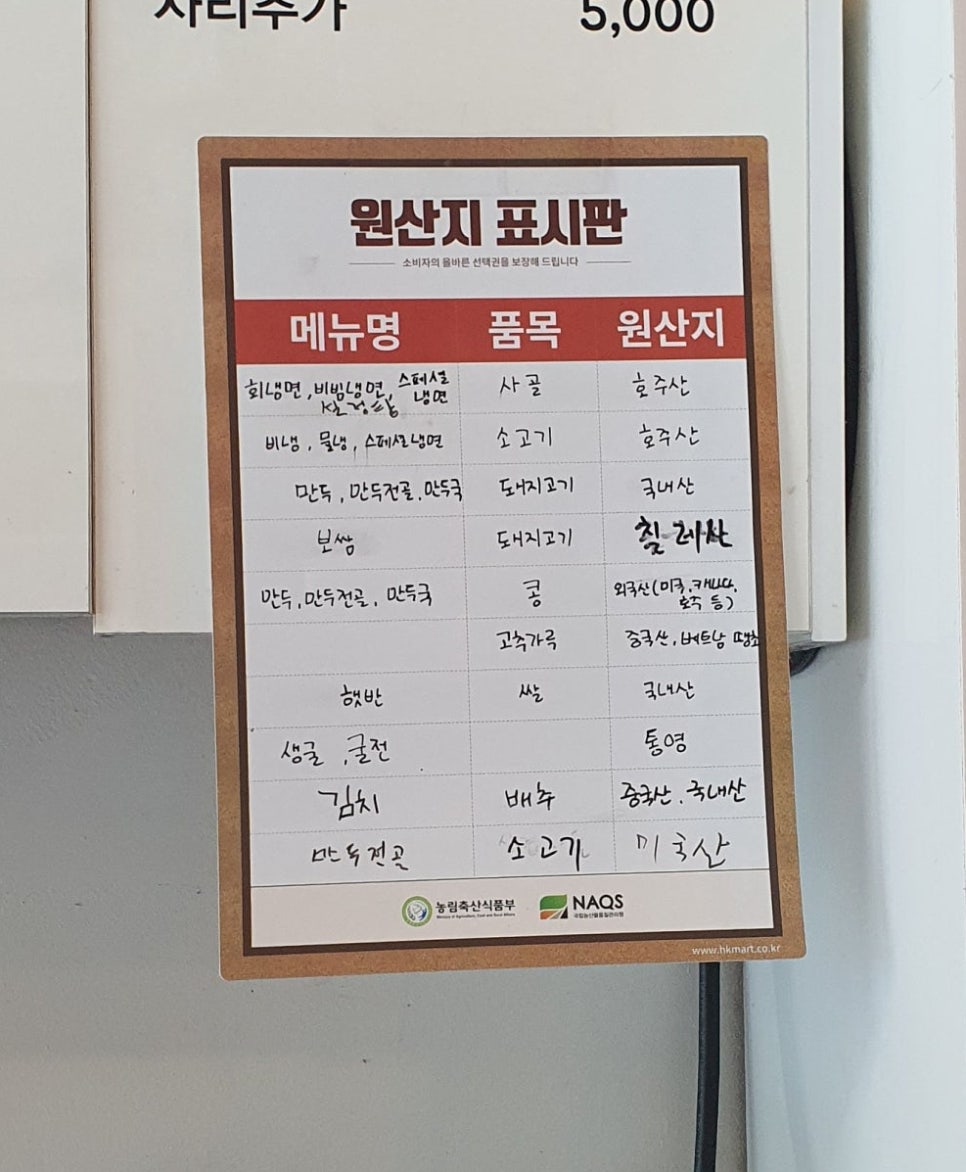 사리추가 5,000
원산지 표시판
소비자의 올바른 선택권을 보장해 드립니다
메뉴명 품목 원산지
회냉면, 비빔냉면, 스페셜 냉면 사골 호주산
비냉, 물냉, 스페셜냉면 소고기 호주산
만두, 만두전골, 만두국 돼지고기 국내산
보쌈 돼지고기 칠레산
만두, 만두전골, 만두국 콩 외국산(미국, 캐나다, 호주 등)
고추가루 중국산, 베트남
햇반 쌀 국내산
생굴, 굴전 통영
김치 배추 중국산. 국내산
만두전골 소고기 미국산
농림축산식품부 NAQS
국립농산물품질관리원
www.hkmart.co.kr